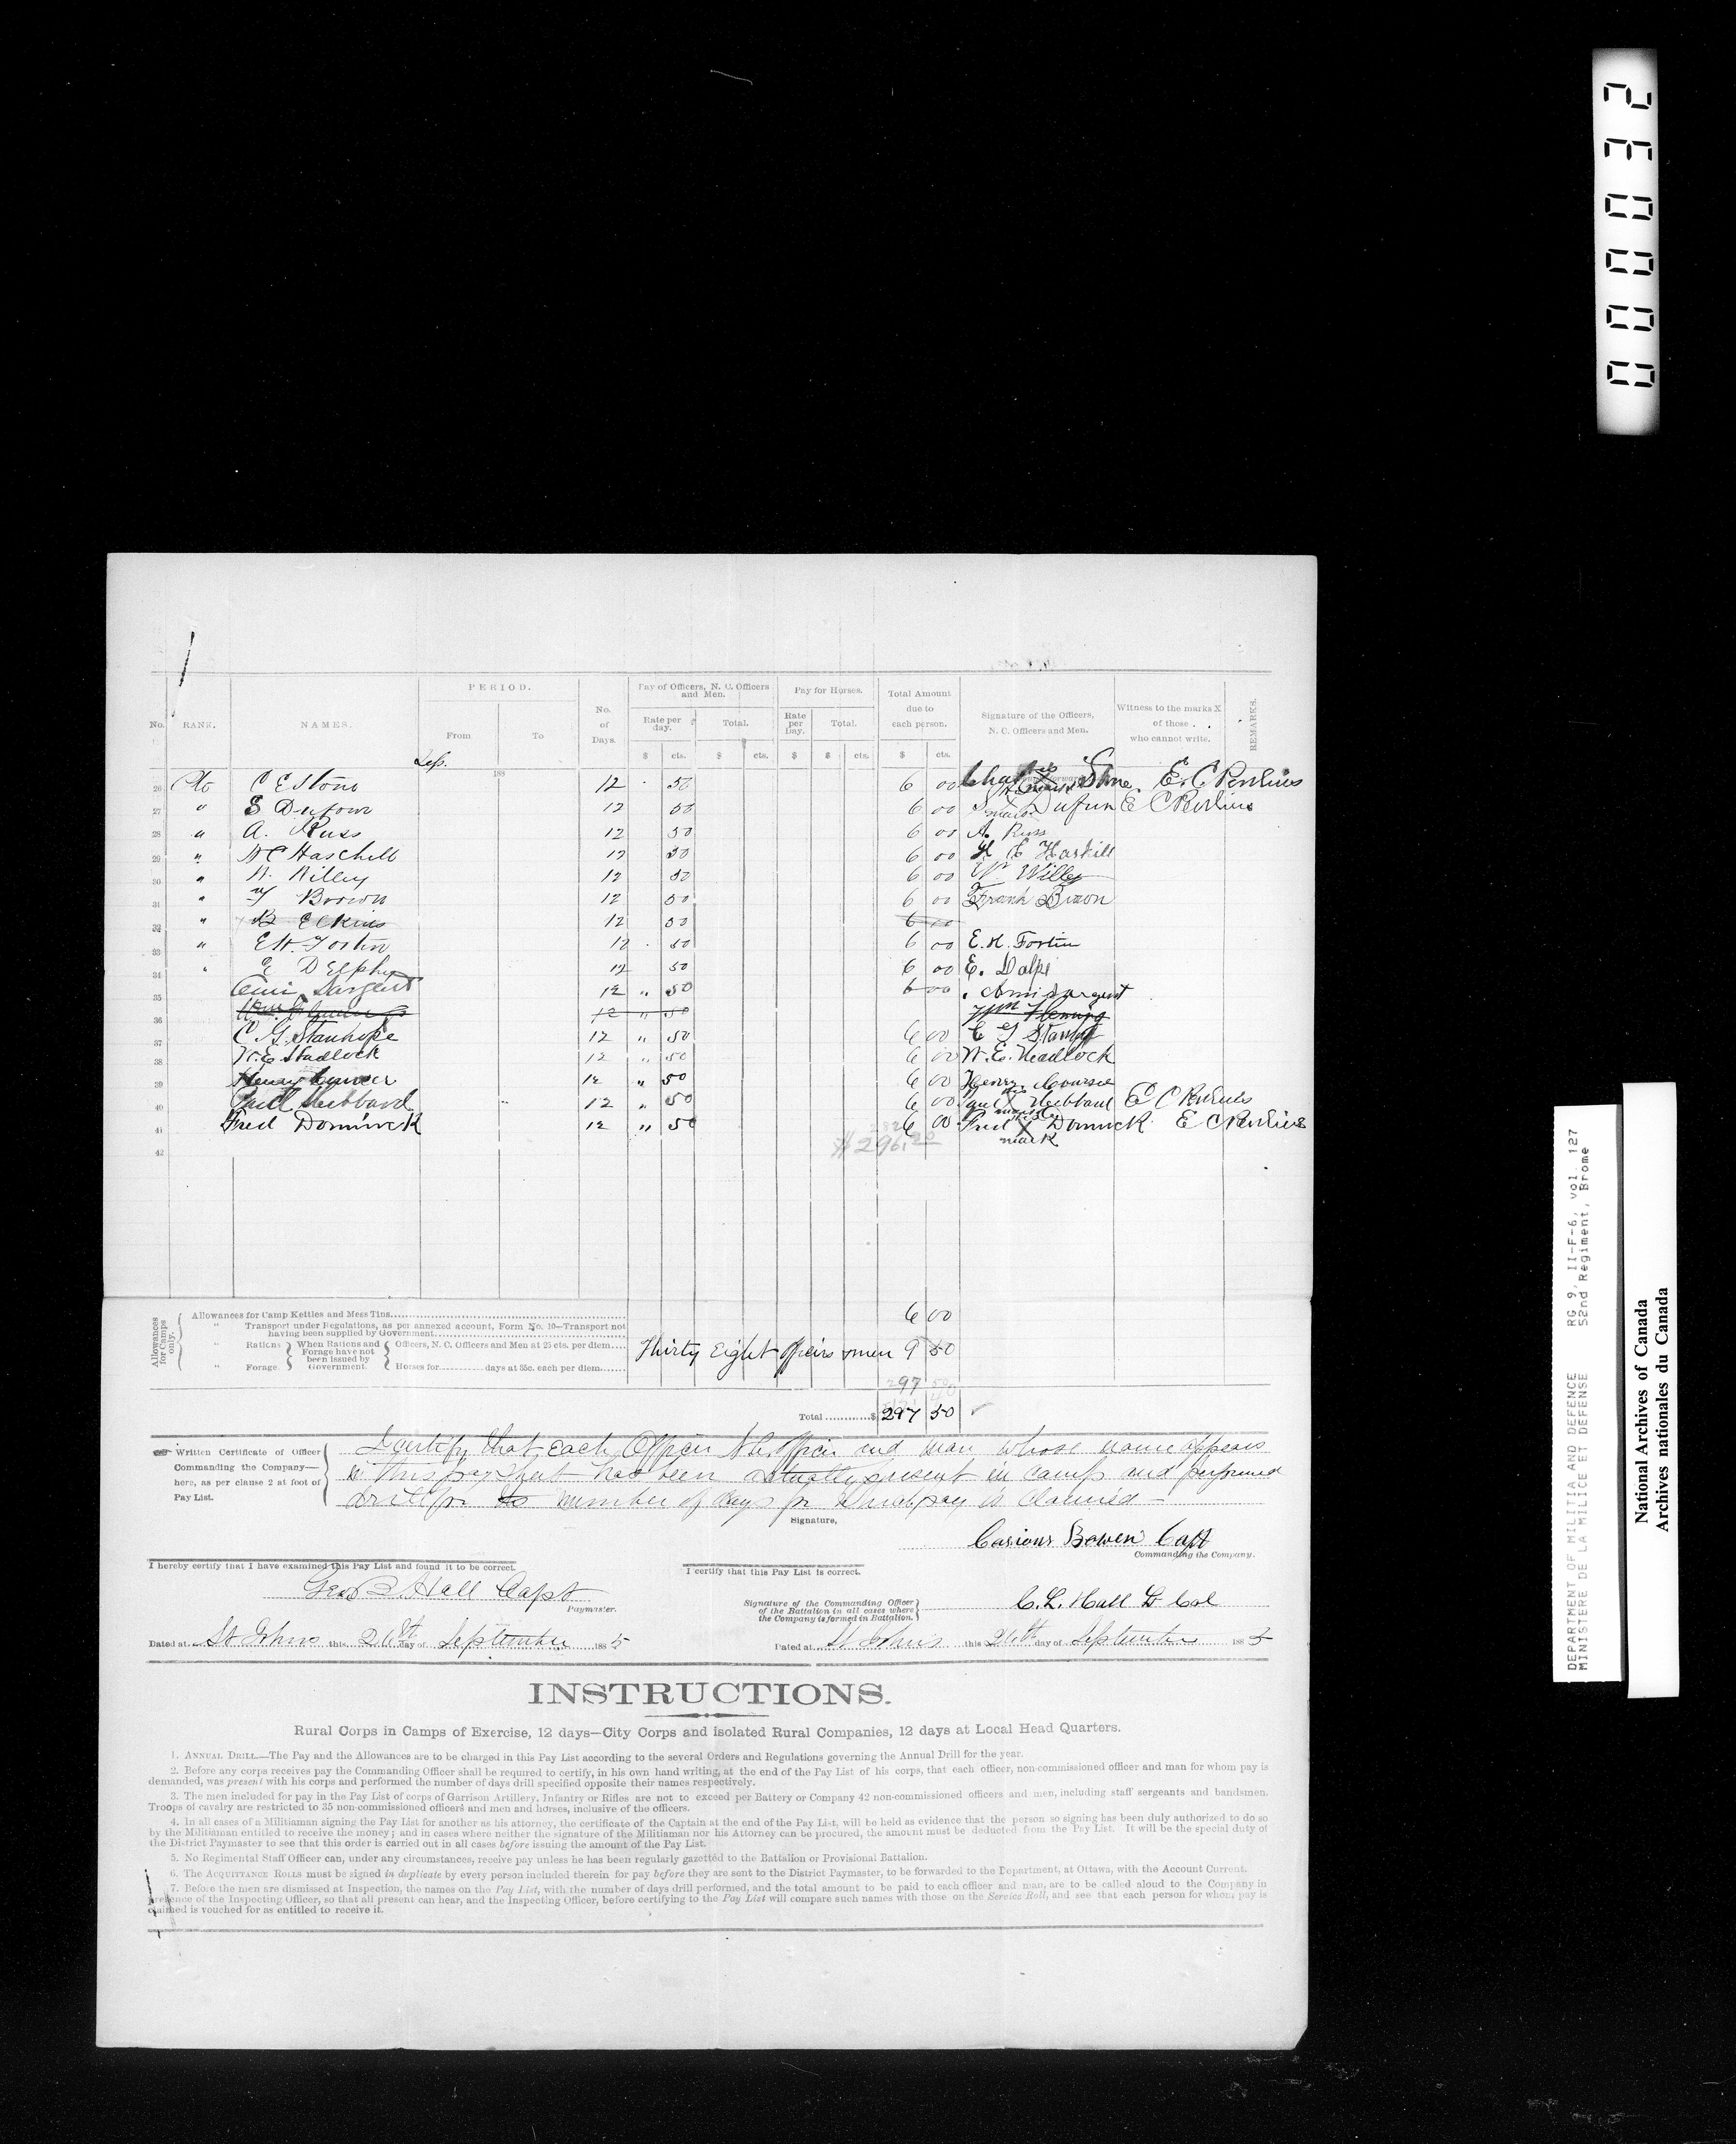 00032
PERIOD.
Pay of Officers, N. C. Officers and Men.
Pay for Horses.
Total Amount due to each person.
No.
RANK.
NAMES.
From
To
No. of Days.
Rate per day.
Total.
Rate per Day.
Total.
Signature of the Officers, N. C. Officers and Men.
Witness to the marks X of those . . who cannot write.
REMARKS.
$ cts. $ cts. $ $ cts. $ cts.
Sep. 188
26 Pte C E Stone 12 50 6 00 Charles X Stone. E. C Perkins
27 " E Dufour 12 50 6 00 X mark Dufur E C Perkins
28 " A. Russ 12 50 6 00 A. Russ
29 " H C Haschell 12 50 6 00 H E Haskill
30 " W. Willey 12 50 6 00 Wm Willey
31 " F Brown 12 50 6 00 Frank Brown
32 " B Elkins 12 50 6 00
33 " E H. Fortin 12 50 6 00 E. H. Fortin
34 " E Delphy 12 50 6 00 E. Dalpe
35 Ami Sargent 12 " 50 6 00 Ami Sargent
36 12 " 50 Wm Fleming
37 C. G. Stanhope 12 " 50 6 00 C G Stanhope
38 W. E. Hadlock 12 " 50 6 00 W. E. Headlock
39 Henry 12 " 50 6 00 Henry
40 Paul Hebbard 12 " 50 6 00 Paul X Hebbard E C Perkins
41 Fred Dominick 12 " 50 6 00 Fred X Dominick E C Perkins
mark
42
$ 296.
Allowances for Camps only.
Allowances for Camp Kettles and Mess Tins 6 00
" Transport under Regulations, as per annexed account, Form No. 10—Transport not having been supplied by Government
" Rations When Rations and Forage have not been issued by Government. Officers, N. C. Officers and Men at 25 cts. per diem Thirty Eight officers & men 9 50
" Forage Horses for days at 35c. each per diem
297 50
Total $ 297 50
Written Certificate of Officer Commanding the Company—here, as per clause 2 at foot of Pay List.
I certify that each Officer N.C. officer and man whose name appears
in this pay sheet has been actually present in camp and performed
drill for the number of days for which pay is claimed —
Signature,
Casious Bowen Capt
Commanding the Company.
I hereby certify that I have examined this Pay List and found it to be correct.
I certify that this Pay List is correct.
Geo B. Hall Capt
Paymaster.
Signature of the Commanding Officer of the Battalion in all cases where the Company is formed in Battalion.
C. L. Hall Lt Col
Dated at St Johns this 26th day of September 1885
Dated at St Johns this 26th day of September 1885
INSTRUCTIONS.
Rural Corps in Camps of Exercise, 12 days—City Corps and isolated Rural Companies, 12 days at Local Head Quarters.
1. ANNUAL DRILL.—The Pay and the Allowances are to be charged in this Pay List according to the several Orders and Regulations governing the Annual Drill for the year.
2. Before any corps receives pay the Commanding Officer shall be required to certify, in his own hand writing, at the end of the Pay List of his corps, that each officer, non-commissioned officer and man for whom pay is
demanded, was present with his corps and performed the number of days drill specified opposite their names respectively.
3. The men included for pay in the Pay List of corps of Garrison Artillery, Infantry or Rifles are not to exceed per Battery or Company 42 non-commissioned officers and men, including staff sergeants and bandsmen.
Troops of cavalry are restricted to 35 non-commissioned officers and men and horses, inclusive of the officers.
4. In all cases of a Militiaman signing the Pay List for another as his attorney, the certificate of the Captain at the end of the Pay List, will be held as evidence that the person so signing has been duly authorized to do so
by the Militiaman entitled to receive the money; and in cases where neither the signature of the Militiaman nor his Attorney can be procured, the amount must be deducted from the Pay List. It will be the special duty of
the District Paymaster to see that this order is carried out in all cases before issuing the amount of the Pay List.
5. No Regimental Staff Officer can, under any circumstances, receive pay unless he has been regularly gazetted to the Battalion or Provisional Battalion.
6. The ACQUITTANCE ROLLS must be signed in duplicate by every person included therein for pay before they are sent to the District Paymaster, to be forwarded to the Department, at Ottawa, with the Account Current.
7. Before the men are dismissed at Inspection, the names on the Pay List, with the number of days drill performed, and the total amount to be paid to each officer and man, are to be called aloud to the Company in
presence of the Inspecting Officer, so that all present can hear, and the Inspecting Officer, before certifying to the Pay List will compare such names with those on the Service Roll, and see that each person for whom pay is
claimed is vouched for as entitled to receive it.
DEPARTMENT OF MILITIA AND DEFENCE RG 9, II-F-6, vol. 127
MINISTERE DE LA MILICE ET DEFENSE 52nd Regiment, Brome
National Archives of Canada
Archives nationales du Canada